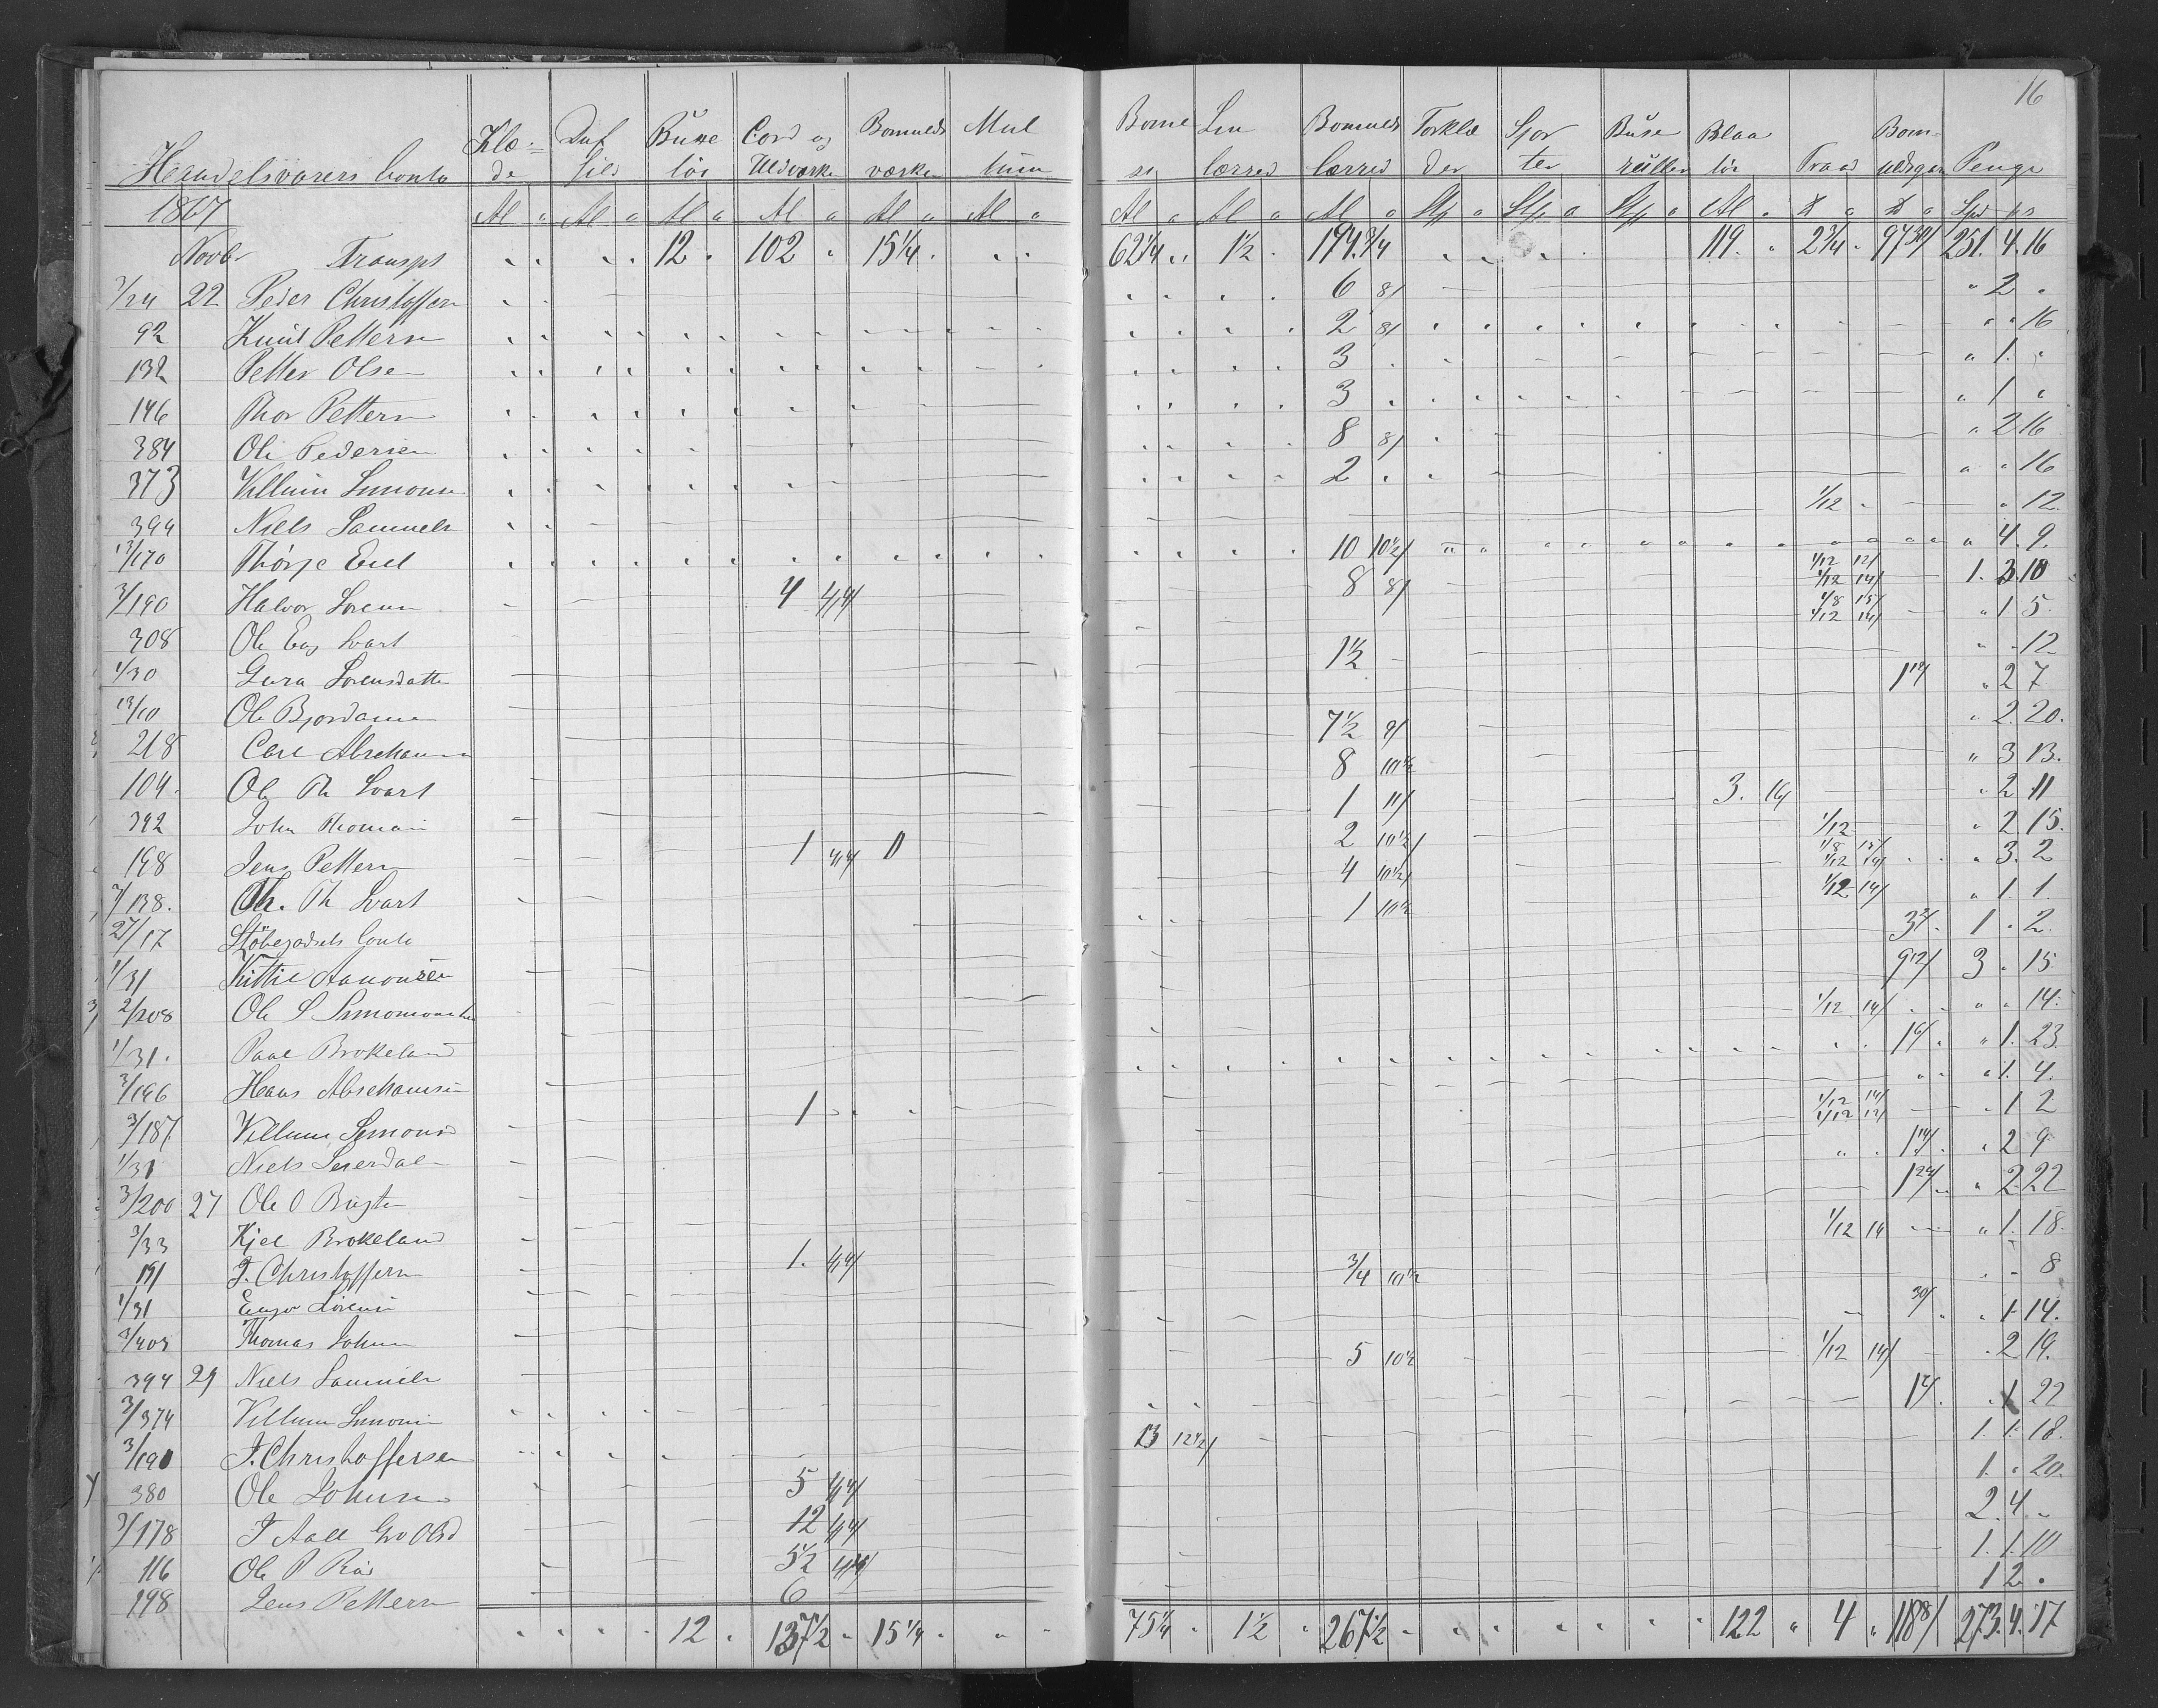 16
Handelsvarers Conto Klæ- de Duf fild Buxe tøi Cord og Uldværker Bomulds værker Mul tum Bome si Lin lærred Bomulds lærred Torklæ der Sjor ter Buse Blaa tøi Traad Bom- uldsgarn Penge
1867 Al " Al " Al " Al " Al " Al " Al " Al " Al " St " St " St " Al " ℔ " ℔ " Spd ps
Novbr Transpt 12 102 15 1/4 62 1/4 1 1/2 194 3/4 119 2 3/4 97 30/ 251. 4. 16
3/24 22 Peder Christoffersn 6 8/ " 2 "
92 Knud Pettersn 2 8/ " " 16
132 Petter Olsen 3 " 1. "
146 Thor Pettersn 3 " 1 "
384 Ole Pedersen 8 8/ " 2 16
373 Villum Simonsn 2 " " 16
394 Niels Samuels 1/12 " 12
13/170 Thórje Eiel 10 10 1/2/ " 4. 9.
3/190 Halvor Lorensn 4 4/4/ 8 8/ 1/12 12/ 1/12 14/ 1. 3. 10
308 Ole Eng Svart 1/8 15/ 1/12 14/ " 1 5
1/30 Gura Sorensdatter 1 1/2 12
13/10 Ole Bjordamen 1 12/ " 2 7
218 Carl Abrahamsn 7 1/2 9/ " 2. 20.
104. Ole Th Svart 8 10 1/2 " 3 13.
392 John Thomasn 1 11/ 3. 16/ " 2 11
198 Jens Pettersn 1 4/4/ 2 10 1/2/ 1/12 " 2 15.
3/138. Th. Th Svart 4 10 1/2/ 1/8 15/ 1/12 14/ " 3. 2
27/17 Stöbegodsets Conto 1 10 1/2 1/12 14/ " 1. 1.
1/31 Kittil Aanonsen 3 3/. 1 " 2.
2/208 Ole S Simonsn 9 12/ 3 " 15
1/31. Paal Brokeland 1/12 14/ " " 14.
3/196 Hans Abrahamsen 1 6/ " 1. 23.
3/187 Villum Simons 1 " 1. 4.
1/31 Niels Seierdal 1/12 14/ 1/12 13/ " 1 2
3/200 27 Ole O 1 14/ " 2 9
3/33 Kjel Brokeland 1 24/ " 2. 22
191 T. Christoffersn 1. 4/4/ 1/12 14 " 1. 18.
1/31 Lorens 3/4 10 1/2 8
3/403 Thomas Johnsn 30/ 1 14.
394 29 Niels Samuels 5 10 1/2 1/12 14/ 2. 19.
3/374 Villum Simonsn 1 2/. 1 22
3/190 T. Christoffersen 13 12 1/2/ 1 1. 18.
380 Ole Johnsen 5 4/4/ 1. " 20.
3/178 T Aall Gro Olsd 12 4/4/ 2. 4. "
116 Ole P Rød 5 1/2 4/4/ 1. 1. 10
198 Jens Pettersn 6 1 2. "
12 137 1/2 15 1/4 75 1/4 1 1/2 267 1/2 122 4 118 8/ 273. 4. 17